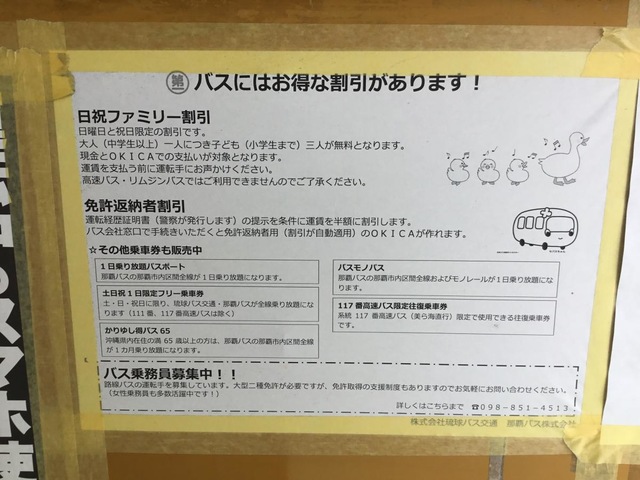 第一バスにはお得な割引があります！
日祝ファミリー割引
日曜日と祝日限定の割引です。
大人（中学生以上）一人につき子ども（小学生まで）三人が無料となります。
現金とＯＫＩＣＡでの支払いが対象となります。
運賃を支払う前に運転手にお声かけください。
高速バス・リムジンバスではご利用できませんのでご了承ください。
免許返納者割引
運転経歴証明書（警察が発行します）の提示を条件に運賃を半額に割引します。
バス会社窓口で手続きいただくと免許返納者用（割引が自動適用）のＯＫＩＣＡが作れます。
☆その他乗車券も販売中
１日乗り放題パスポート
那覇バスの那覇市内区間全線が１日乗り放題になります。
土日祝１日限定フリー乗車券
土・日・祝日に限り、琉球バス交通・那覇バスが全線乗り放題になります（111番、117番高速バスは除く）
かりゆし得バス65
沖縄県内在住の満65歳以上の方は、那覇バスの那覇市内区間全線が１カ月乗り放題になります。
バスモノパス
那覇バスの那覇市内区間全線およびモノレールが１日乗り放題になります。
117番高速バス限定往復乗車券
系統117番高速バス（美ら海直行）限定で使用できる往復乗車券です。
バス乗務員募集中！！
路線バスの運転手を募集しています。大型二種免許が必要ですが、免許取得の支援制度もありますのでお気軽にお問い合わせください。
（女性乗務員も多数活躍中です！）
詳しくはこちらまで ☎098-851-4513
株式会社琉球バス交通　那覇バス株式会社
のスマホ使